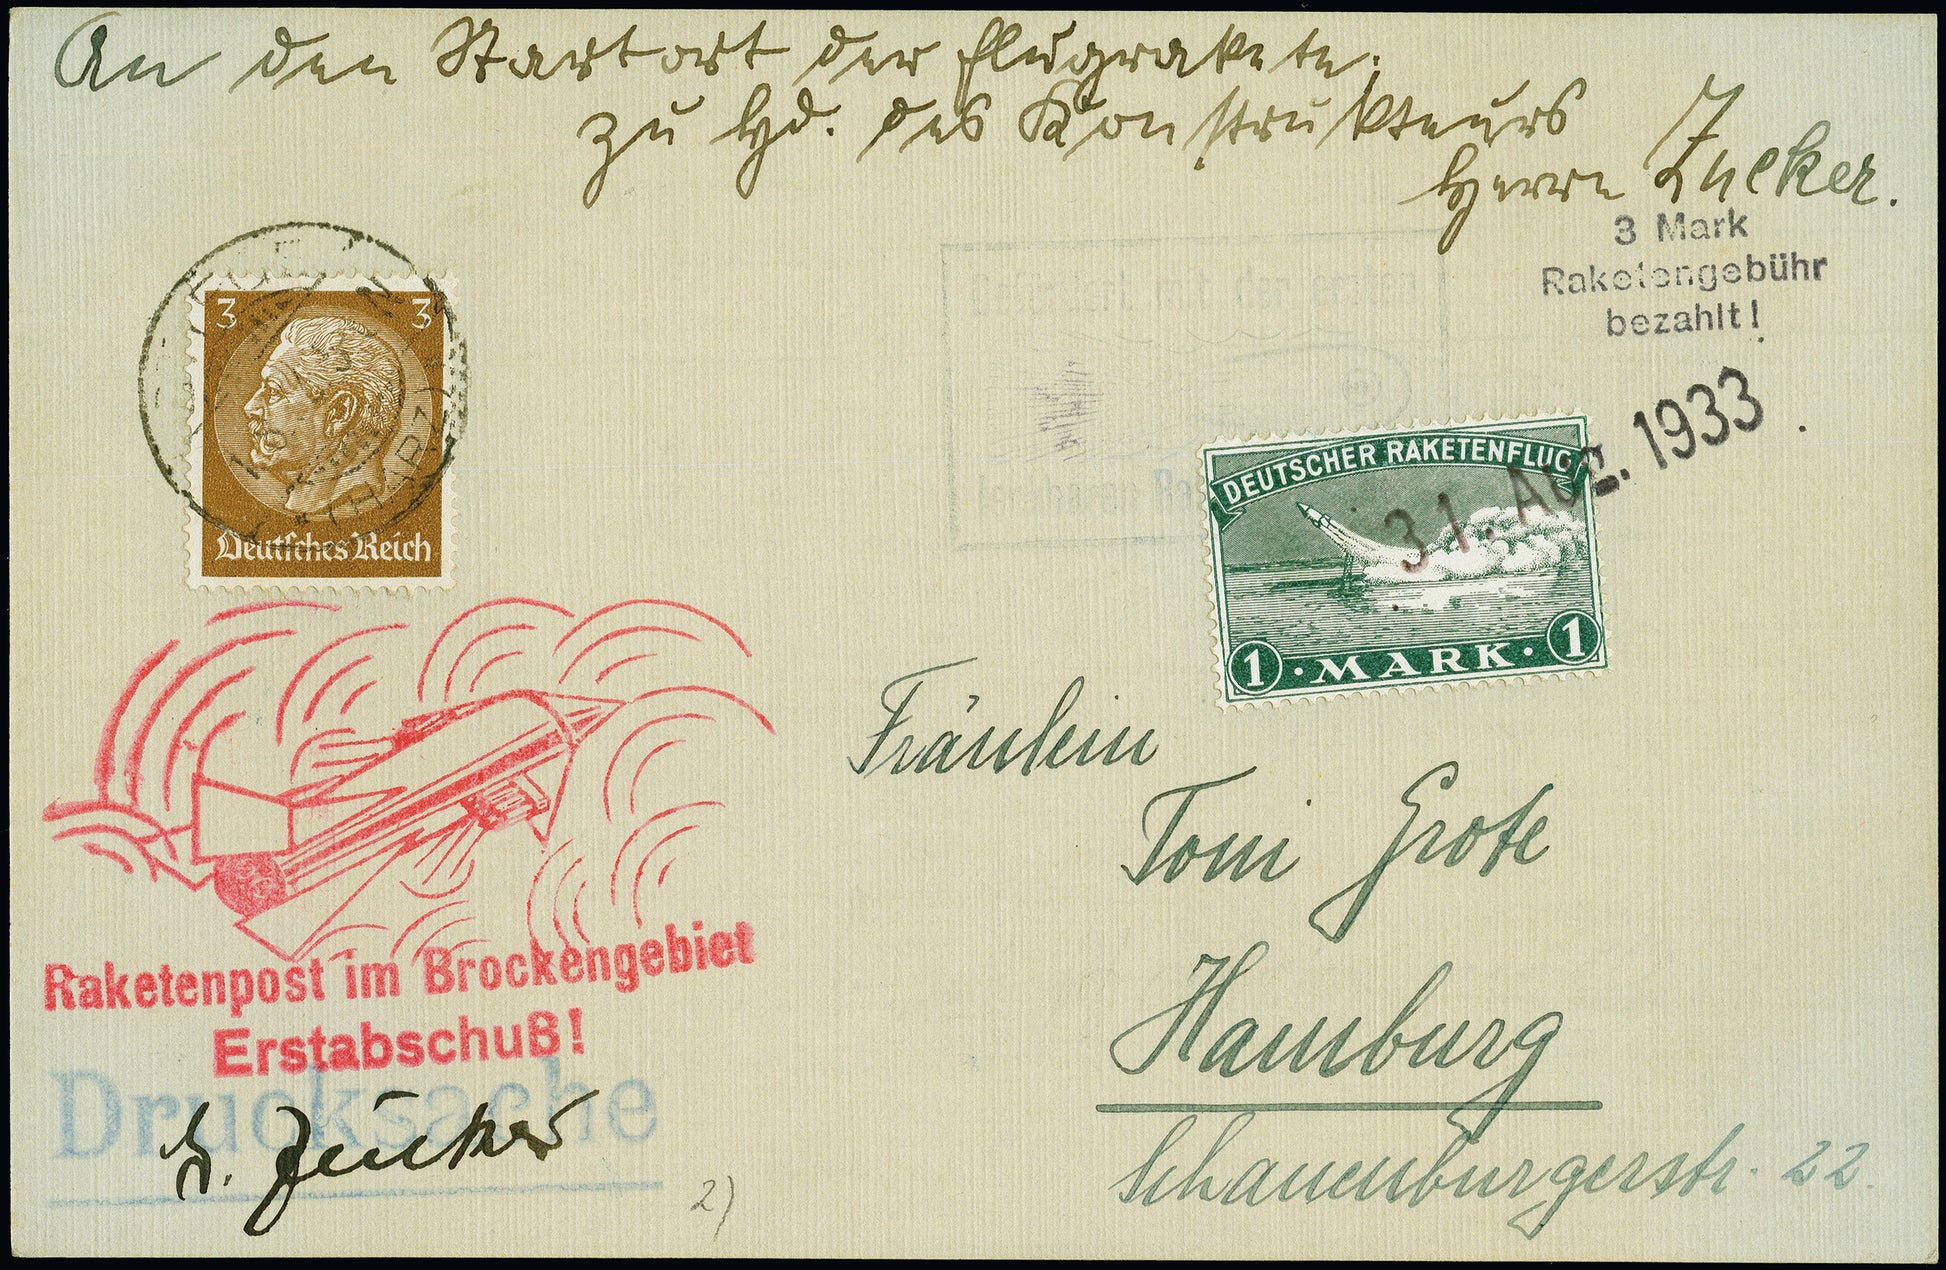 An den Startort der Flugrakete.
zu Hd. des Konstrukteurs
Herrn Zucker.
3 Mark
Raketengebühr
bezahlt!
3 3
HARZ
Deutsches Reich
31. AUG. 1933
DEUTSCHER RAKETENFLUG
1 · MARK · 1
Fräulein
Toni Grote
Hamburg
Schauenburgerstr. 22.
Raketenpost im Brockengebiet
Erstabschuß!
Drucksache
G. Zucker
2)